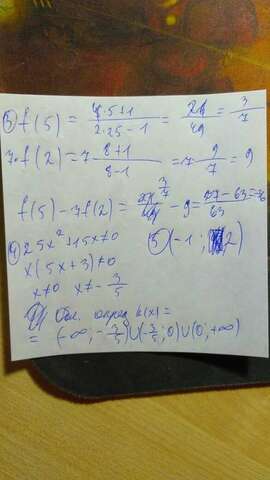 ③ f(5) = 4·5+1 / 2·25-1 = 21/49 = 3/7
7·f(2) = 7 8+1 / 8-1 = 7 9/7 = 9
f(5) - 7f(2) = 3/7 - 9 = - 63 / 63
④ 25x²+15x≠0
⑤ (-1; 2)
x(5x+3)≠0
x≠0 x≠-3/5
Обл. опред k(x)=
= (-∞; -3/5)∪(-3/5; 0)∪(0; +∞)